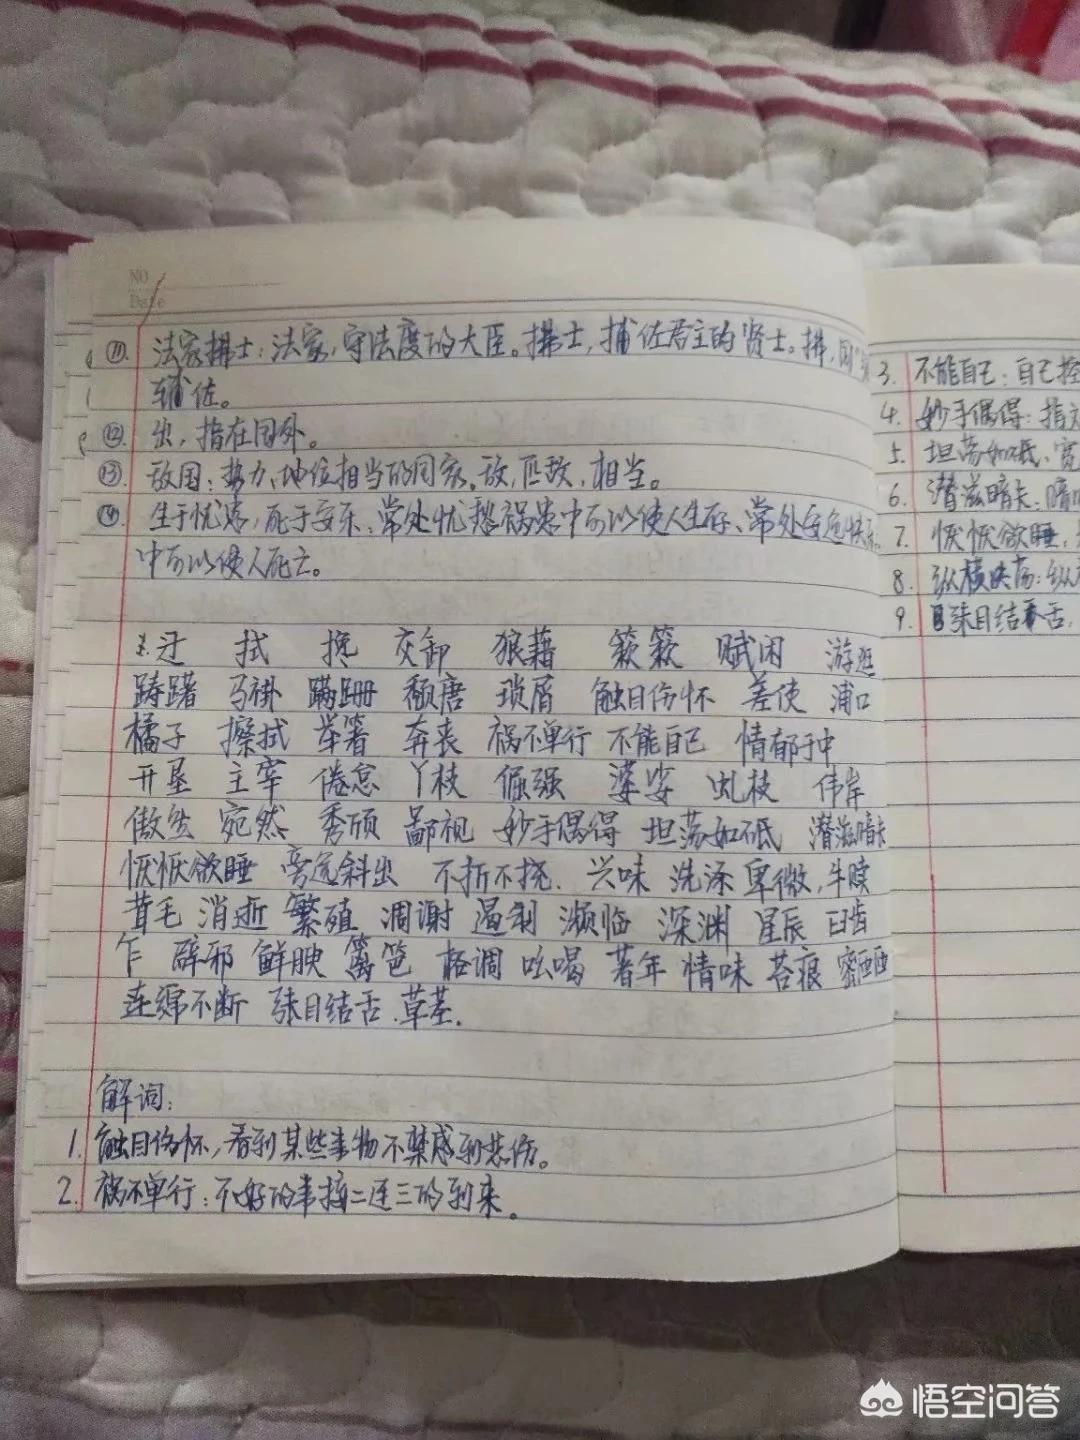 NO
Date
⑪. 法家拂士：法家，守法度的大臣。拂士，捕佐君主的贤士。拂，同"
辅佐。
⑫. 出，指在国外。
⑬. 敌国：势力、地位相当的国家。敌，匹敌，相当。
⑭. 生于忧患，死于安乐：常处忧愁祸患中可以使人生存、常处安逸快乐
中可以使人死亡。
迂 拭 搀 交卸 狼藉 簌簌 赋闲 游逛
踌躇 马褂 蹒跚 颓唐 琐屑 触目伤怀 差使 浦口
橘子 擦拭 举箸 奔丧 祸不单行 不能自已 情郁于中
开垦 主宰 倦怠 丫枝 倔强 婆娑 虬枝 伟岸
傲然 宛然 秀颀 鄙视 妙手偶得 坦荡如砥 潜滋暗长
恹恹欲睡 旁逸斜出 不折不挠. 兴味 洗涤 卑微，牛犊
茸毛 消逝 繁殖 凋谢 遏制 濒临 深渊 星辰 臼齿
乍 辟邪 鲜腴 篱笆 格调 吆喝 暮年 情味 苔痕
连绵不断 张目结舌. 草茎.
解词：
1. 触目伤怀，看到某些事物不禁感到悲伤。
2. 祸不单行：不好的事接二连三的到来。
3. 不能自已：自己控
4. 妙手偶得：指文
5. 坦荡如砥：宽
6. 潜滋暗长：暗
7. 恹恹欲睡：
8. 纵横决荡：纵
9. 张目结舌，
悟空问答